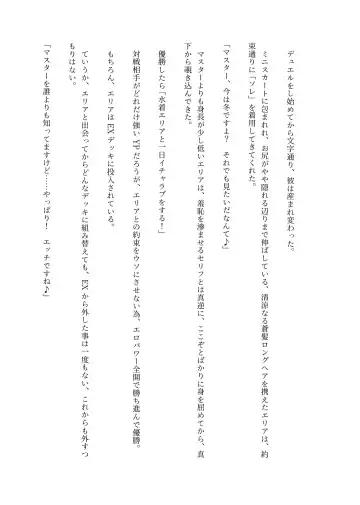 デュエルをし始めてから文字通り、彼は産まれ変わった。
ミニスカートに包まれれ、お尻がやや隠れる辺りまで伸ばしている、清涼なる蒼髪ロングヘアを携えたエリアは、約
束通りに「ソレ」を着用してきてくれた。
「マスター、今は冬ですよ？　それでも見たいだなんて♪」
マスターよりも身長が少し低いエリアは、羞恥を滲ませるセリフとは真逆に、ここぞとばかりに身を屈めてから、真
下から覗き込んできた。
優勝したら「水着エリアと一日イチャラブをする！」
対戦相手がどれだけ強いVPだろうが、エリアとの約束をウソにさせない為、エロパワー全開で勝ち進んで優勝。
もちろん、エリアはEXデッキに投入されている。
ていうか、エリアと出会ってからどんなデッキに組み替えても、EXから外した事は一度もない、これからも外すつ
もりはない。
「マスターを誰よりも知ってますけど……やっぱり！　エッチですね♪」